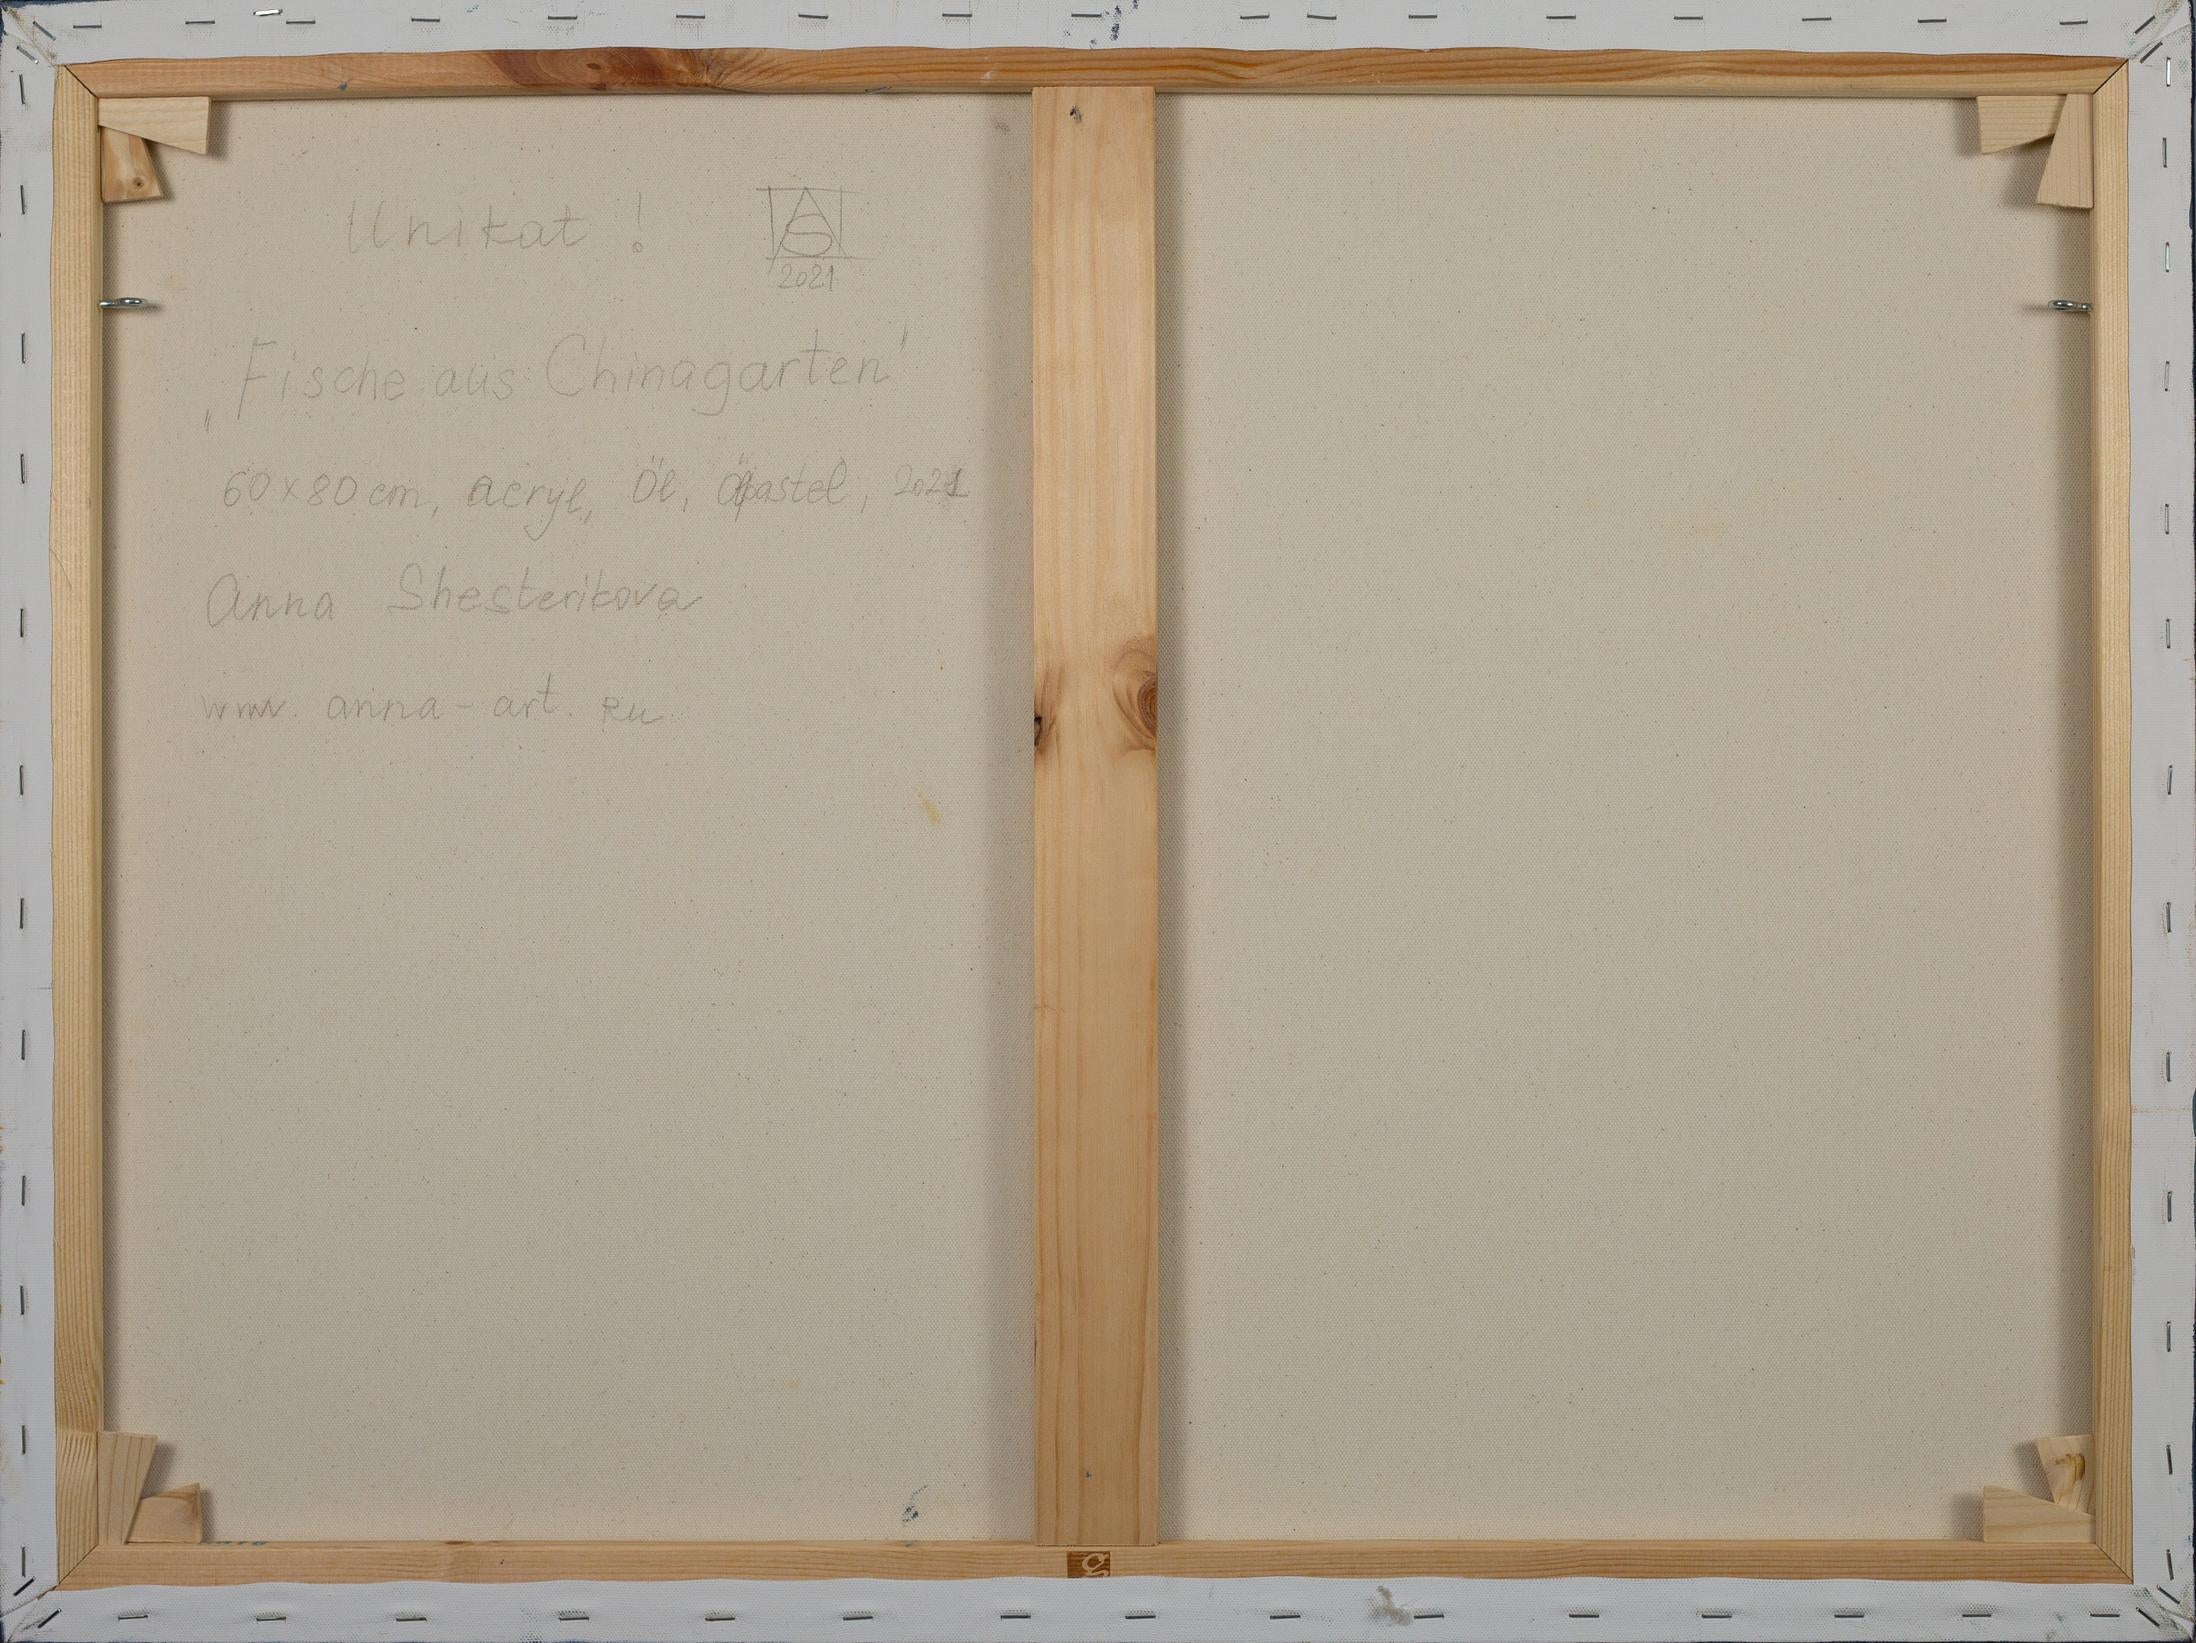 Unikat !
AS
2021
„Fische aus Chinagarten"
60x80 cm, acryl, Öl, Ölpastel, 2021
Anna Shesterikova
www.anna-art.ru